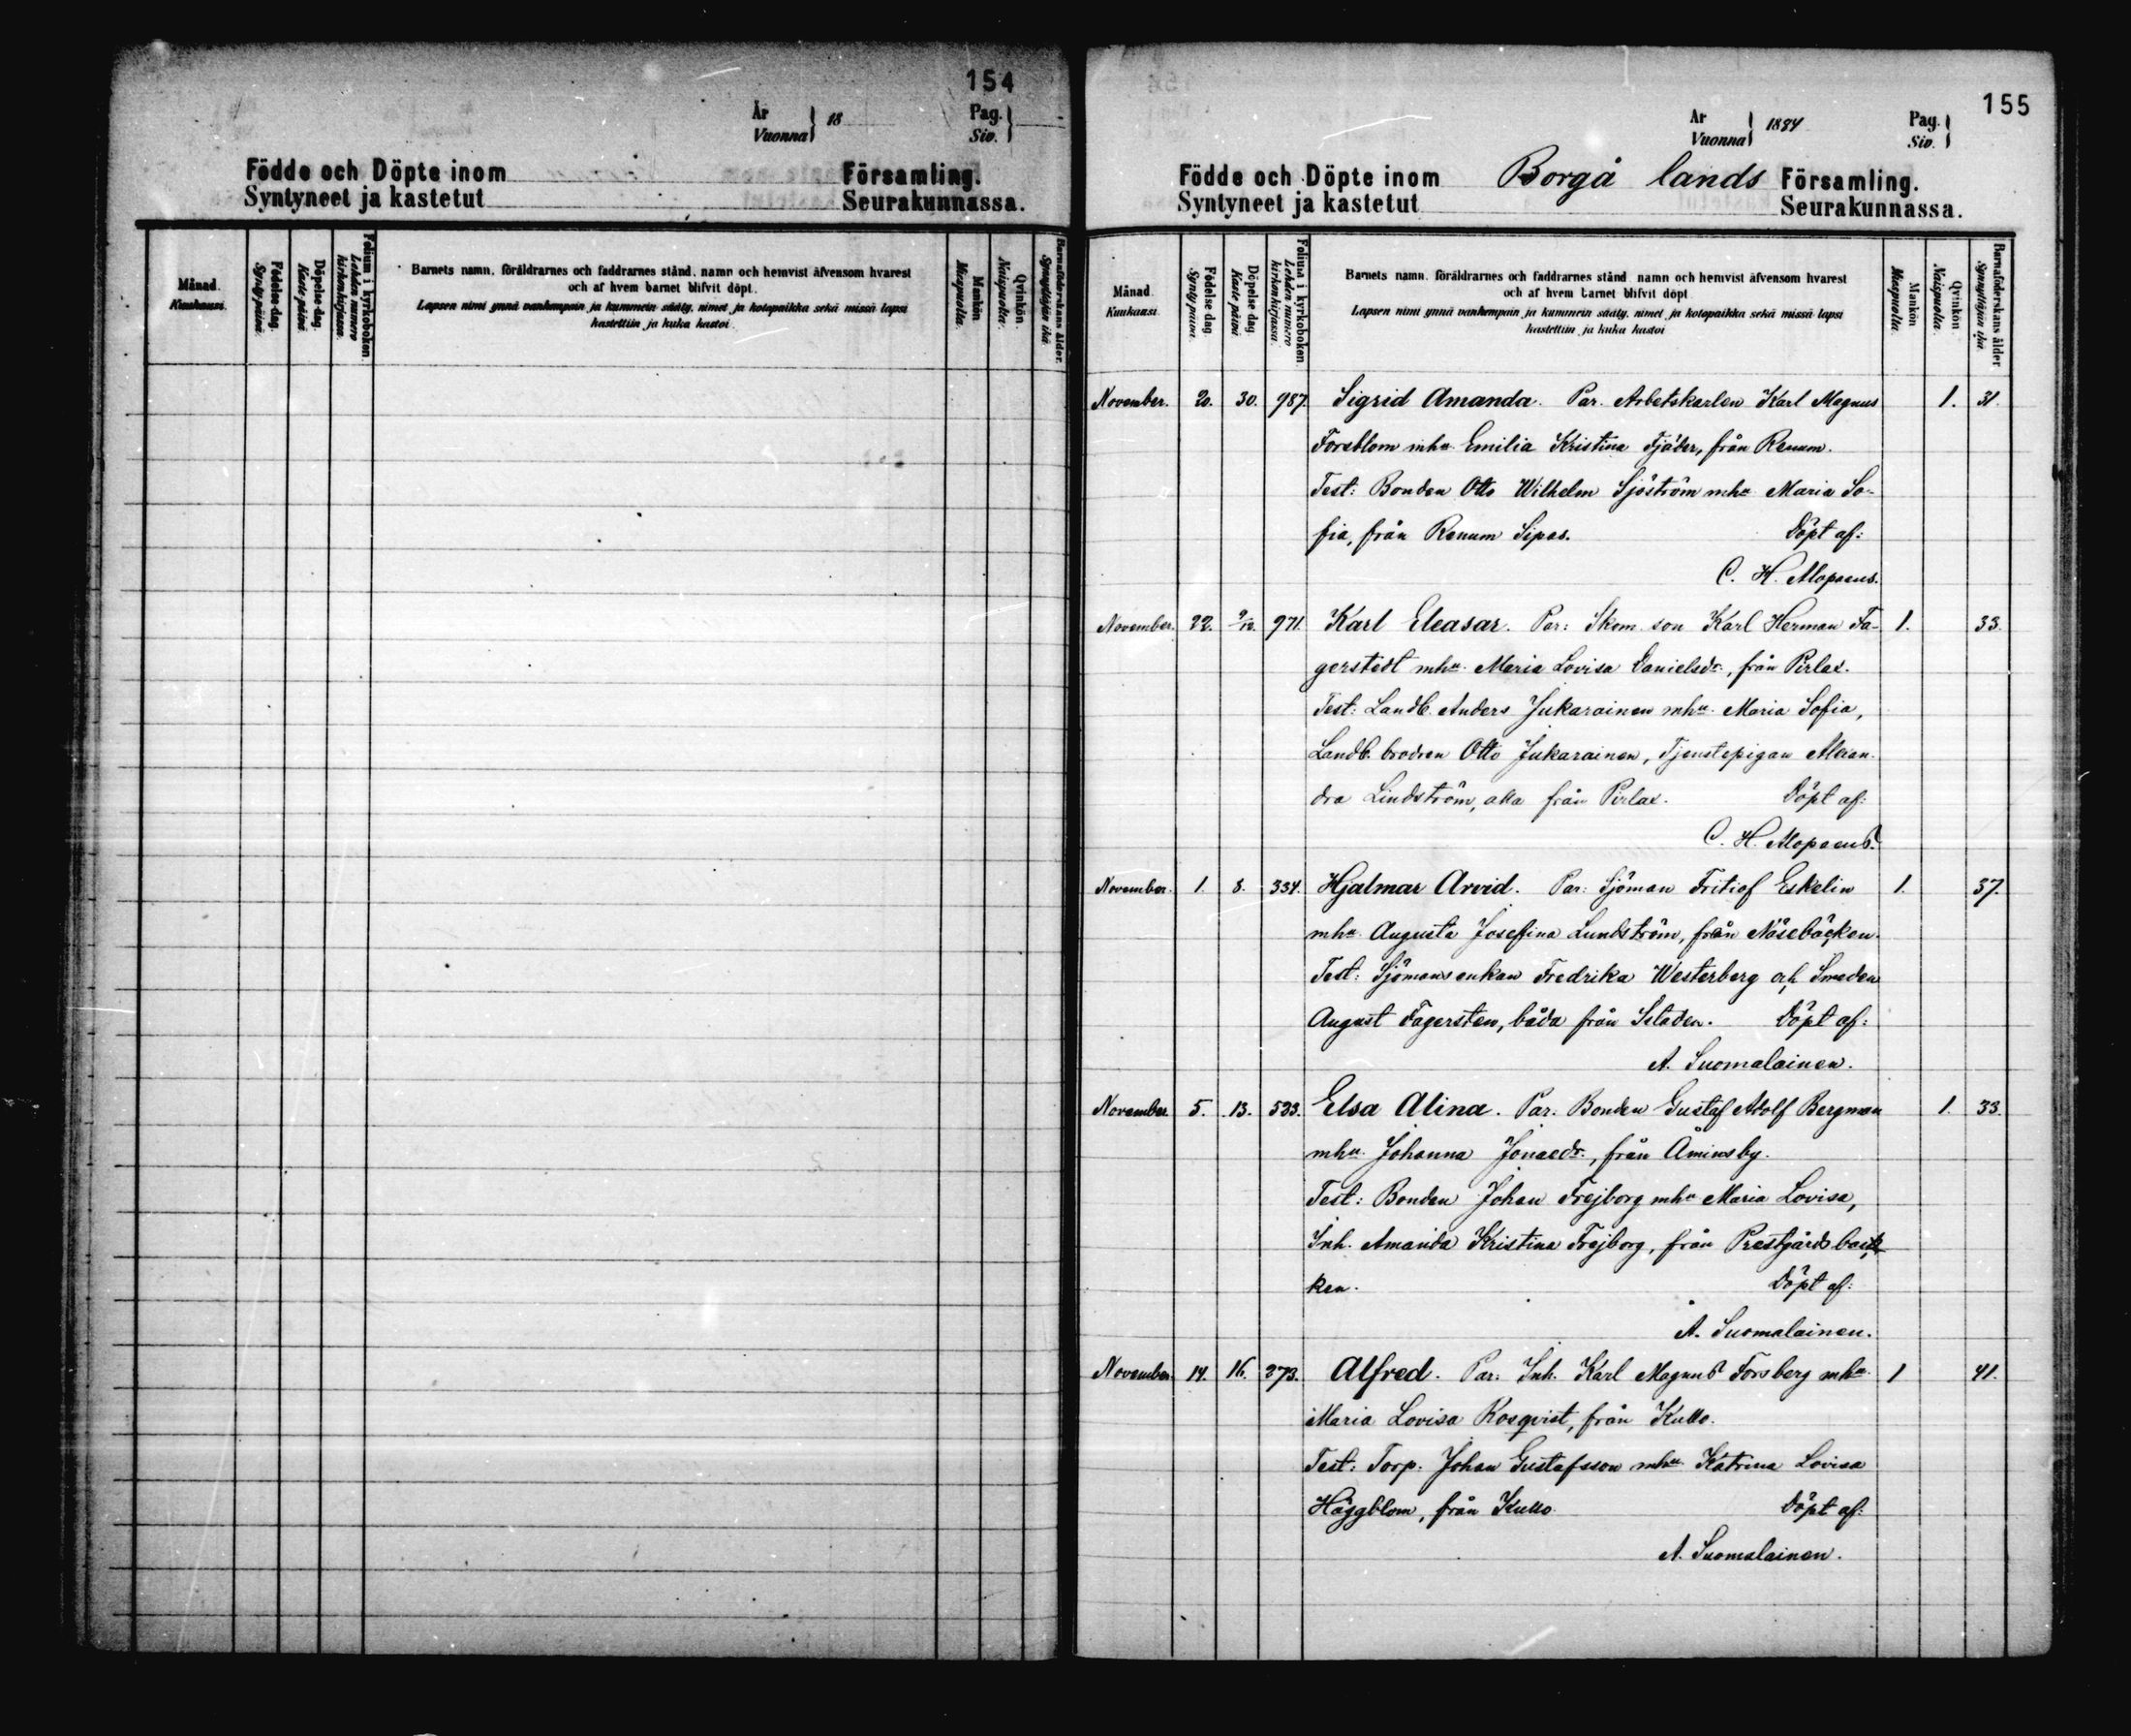 154
År
Vuonna } 18
Pag.
Siv. }
Födde och Döpte inom Församling.
Syntyneet ja kastetut Seurakunnassa.
Månad.
Kuukausi.
Födelse-dag.
Synty-päivä.
Döpelse-dag.
Kaste-päivä.
Folium i kyrkoboken.
Lehden numero kirkonkirjassa.
Barnets namn, föräldrarnes och faddrarnes stånd, namn och hemvist äfvensom hvarest
och af hvem barnet blifvit döpt.
Lapsen nimi ynnä vanhempain ja kummein sääty, nimet ja kotopaikka sekä missä lapsi
kastettiin ja kuka kastoi.
Mankön.
Miespuolta.
Qvinkön.
Naispuolta.
Barnaföderskans ålder.
Synnyttäjän ikä.
155
År
Vuonna } 1884
Pag.
Siv. }
Födde och Döpte inom Borgå lands Församling.
Syntyneet ja kastetut Seurakunnassa.
Månad.
Kuukausi.
Födelse dag.
Synty päivä.
Döpelse dag.
Kaste päivä.
Folium i kyrkoboken.
Lehden numero kirkonkirjassa.
Barnets namn, föräldrarnes och faddrarnes stånd, namn och hemvist äfvensom hvarest
och af hvem barnet blifvit döpt
Lapsen nimi ynnä vanhempain ja kummein sääty, nimet ja kotopaikka sekä missä lapsi
kastettiin ja kuka kastoi
Mankön
Miespuolta.
Qvinkön
Naispuolta.
Barnaföderskans ålder
Synnyttäjän ikä.
November. 20. 30. 987. Sigrid Amanda. Par. Arbetskarlen Karl Magnus 1. 31.
Forsblom mhu. Emilia Kristina Fjäder, från Renum.
Test: Bonden Otto Wilhelm Sjöström mhu Maria So-
fia, från Renum Sipas. Döpt af:
C. H. Alopaeus.
November. 22. 9/12. 971. Karl Eleasar. Par: Skom. son Karl Herman Fa- 1. 33.
gerstedt mhu. Maria Lovisa Danielsdr., från Pirlax.
Test: Landb. Anders Jukarainen mhu. Maria Sofia,
Landb. brodren Otto Jukarainen, Tjenstepigan Alexan
dra Lindström, alla från Pirlax. Döpt af:
C. H. Alopaeus.
November. 1. 8. 334. Hjalmar Arvid. Par: Sjöman Fritiof Eskelin 1. 37.
mhu Augusta Josefina Lundström, från Näsebacken.
Test: Sjömansenkan Fredrika Westerberg och Smeden
August Fagersten, båda från Staden. Döpt af:
A. Suomalainen.
November. 5. 13. 533. Elsa Alina. Par: Bonden Gustaf Adolf Bergman 1. 33.
mhu. Johanna Jonasdr., från Åminsby.
Test: Bonden Johan Frejborg mhu Maria Lovisa,
Inh. Amanda Kristina Frejborg, från Prestgårdsback
ken. Döpt af:
A. Suomalainen.
November. 14. 16. 273. Alfred. Par: Inh. Karl Magnus Forsberg mhu 1 41.
Maria Lovisa Rosqvist, från Kullo.
Test: Torp. Johan Gustafsson mhu Katrina Lovisa
Häggblom, från Kullo. Döpt af:
A. Suomalainen.